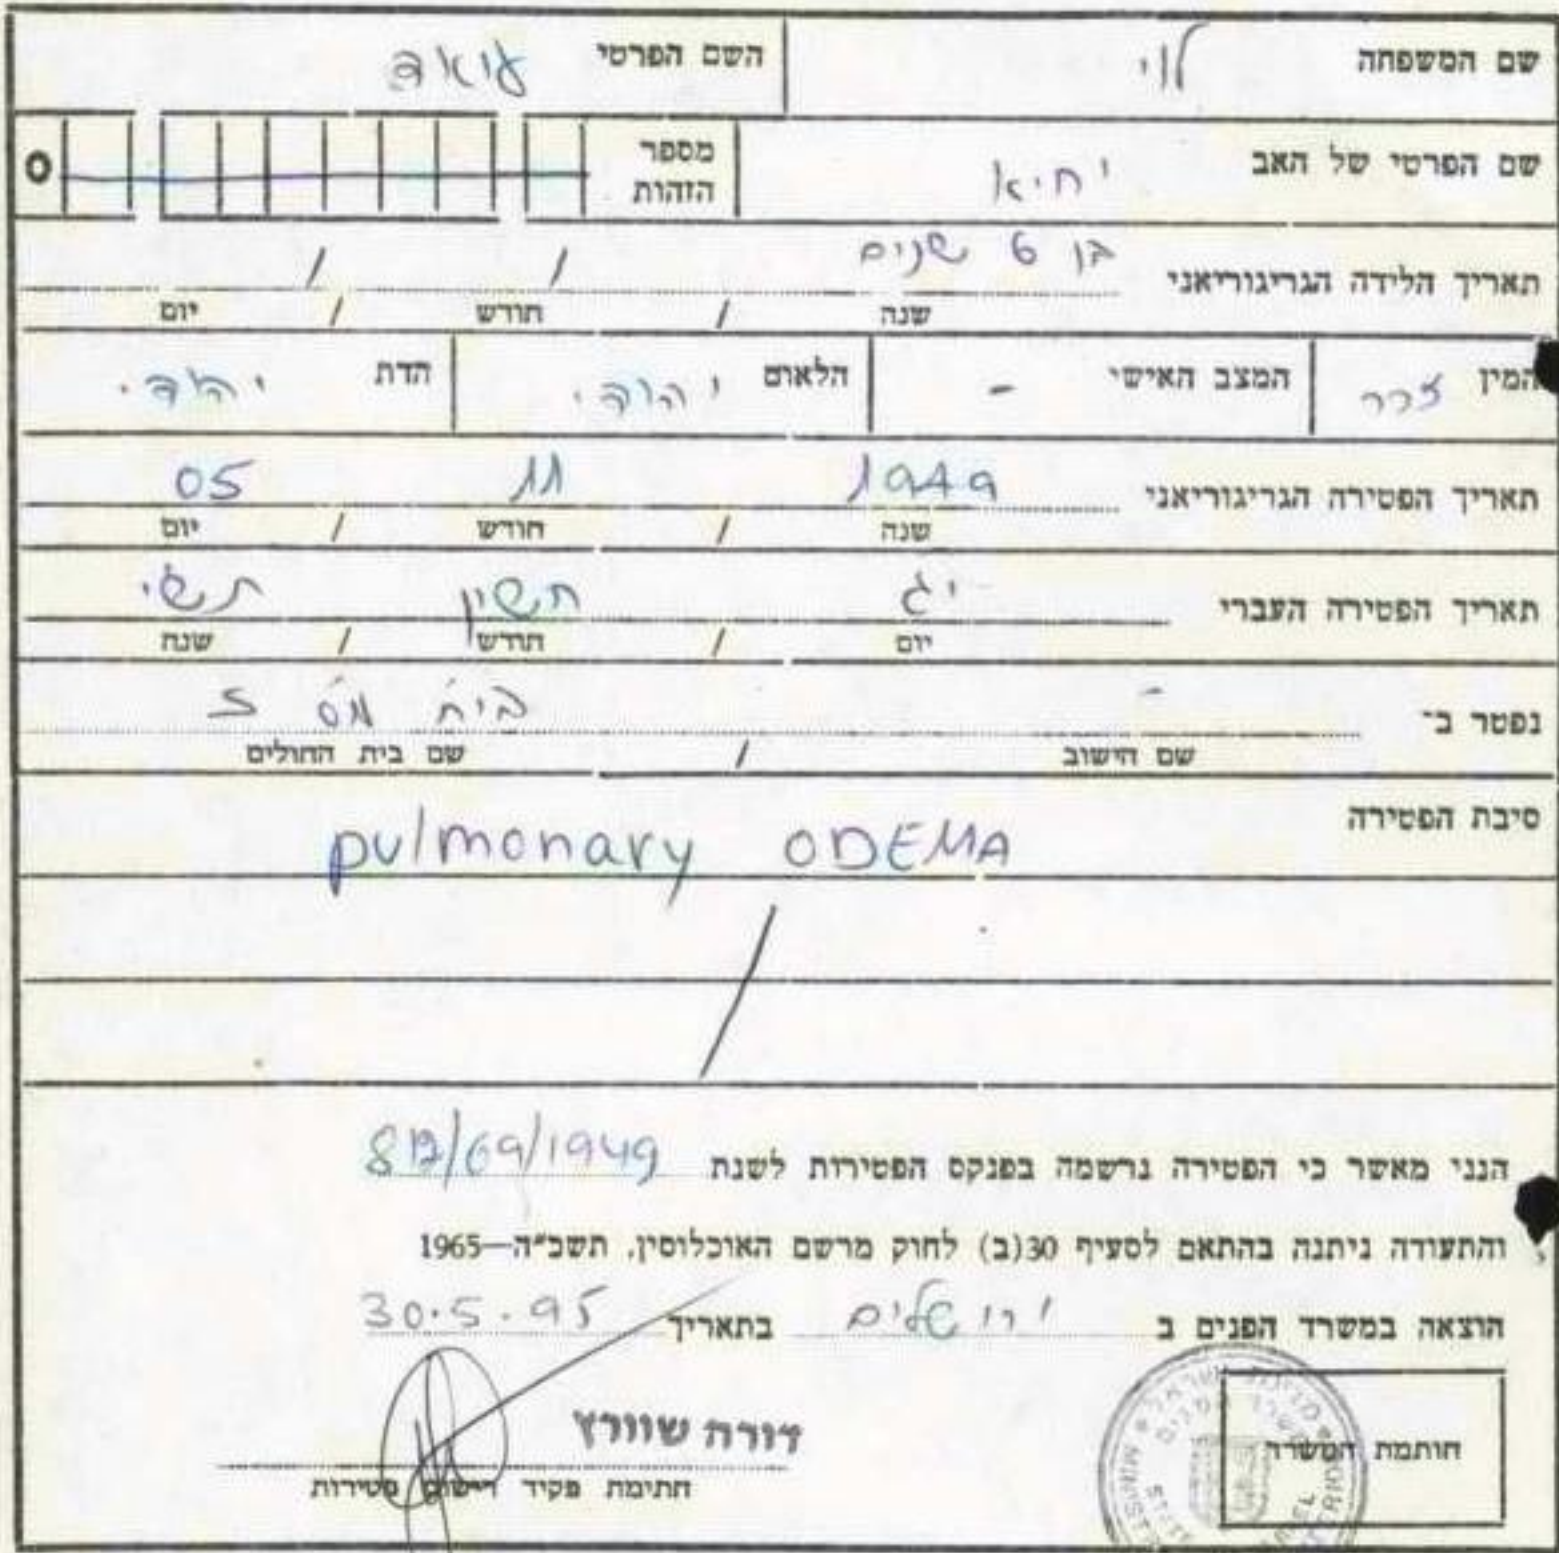 שם המשפחה לוי השם הפרטי עואד
שם הפרטי של האב יחיא מספר הזהות 0
תאריך הלידה הגריגוריאני בן 6 שנים / /
שנה / חודש / יום
המין זכר המצב האישי - הלאום יהודי הדת יהודי
תאריך הפטירה הגריגוריאני 1949 11 05
שנה / חודש / יום
תאריך הפטירה העברי יג חשון תשי
יום / חודש / שנה
נפטר ב־ - ביה מס 2
שם הישוב / שם בית החולים
סיבת הפטירה
pulmonary ODEMA
הנני מאשר כי הפטירה נרשמה בפנקס הפטירות לשנת
והתעודה ניתנה בהתאם לסעיף 30(ב) לחוק מרשם האוכלוסין, תשכ״ה—1965
הוצאה במשרד הפנים ב ירושלים בתאריך 30.5.95
דורה שוורץ
חותמת המשרד
חתימת פקיד רישום פטירות